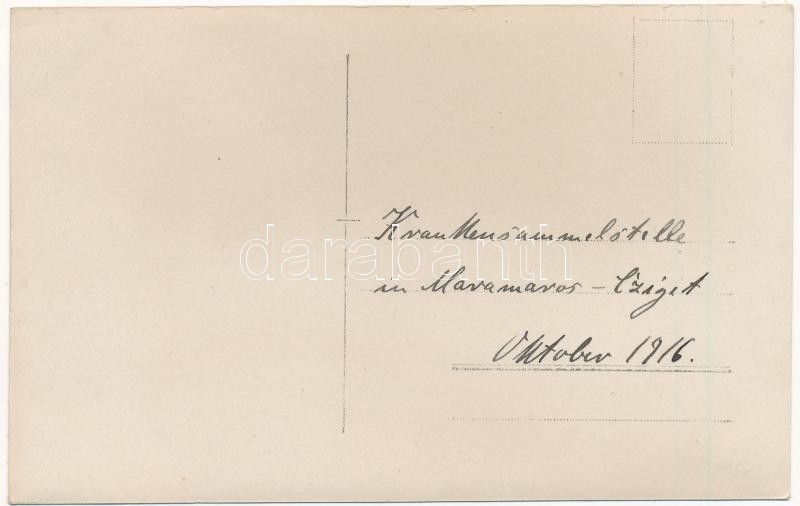 Krankensammelstelle
darabanth
in Maramaros - Sziget
Oktober 1916.